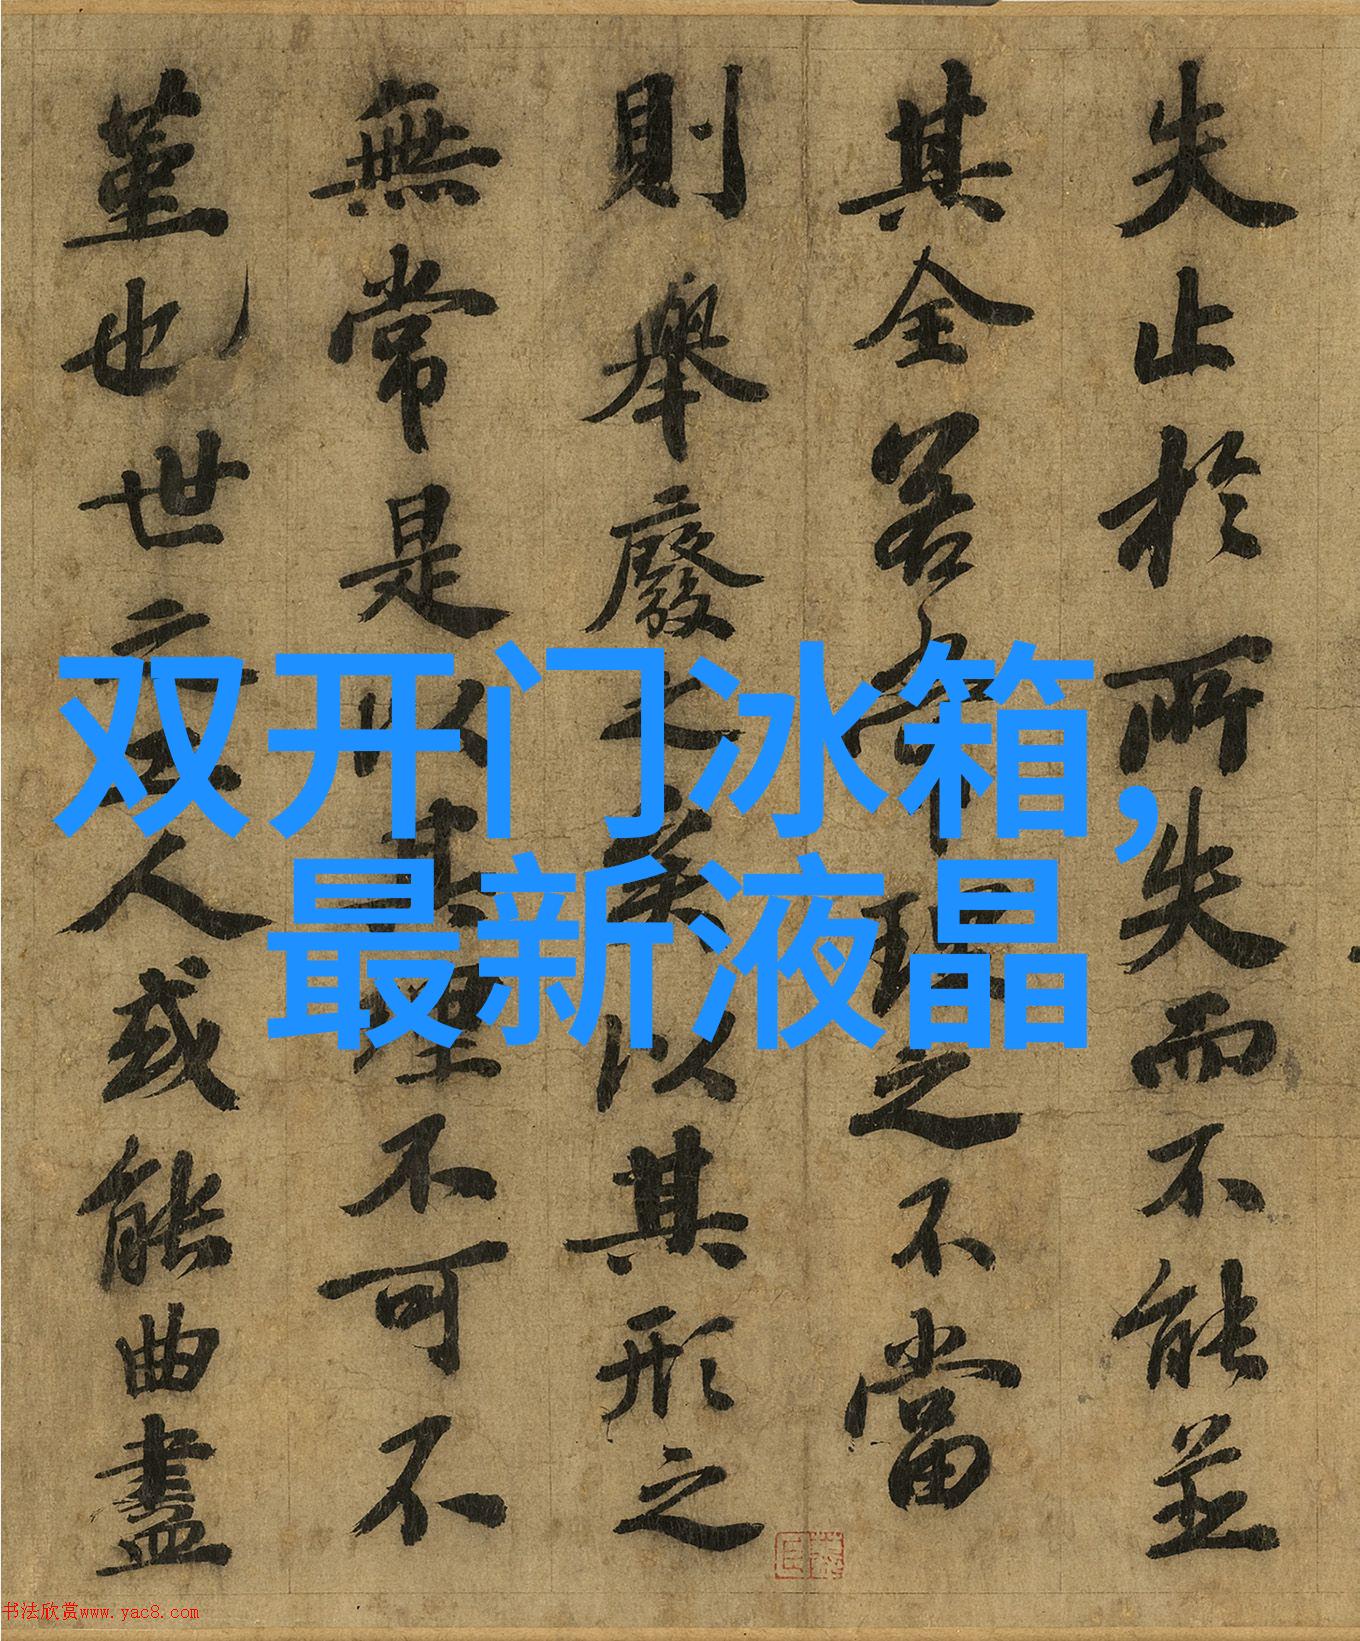 失止於所失而不能並
其全若常理之不當
則舉廢之矣以其形之
無常是以其理不可不
堇也世之工人或能曲盡
双开门冰箱，
最新液晶
书法欣赏www.yac8.com